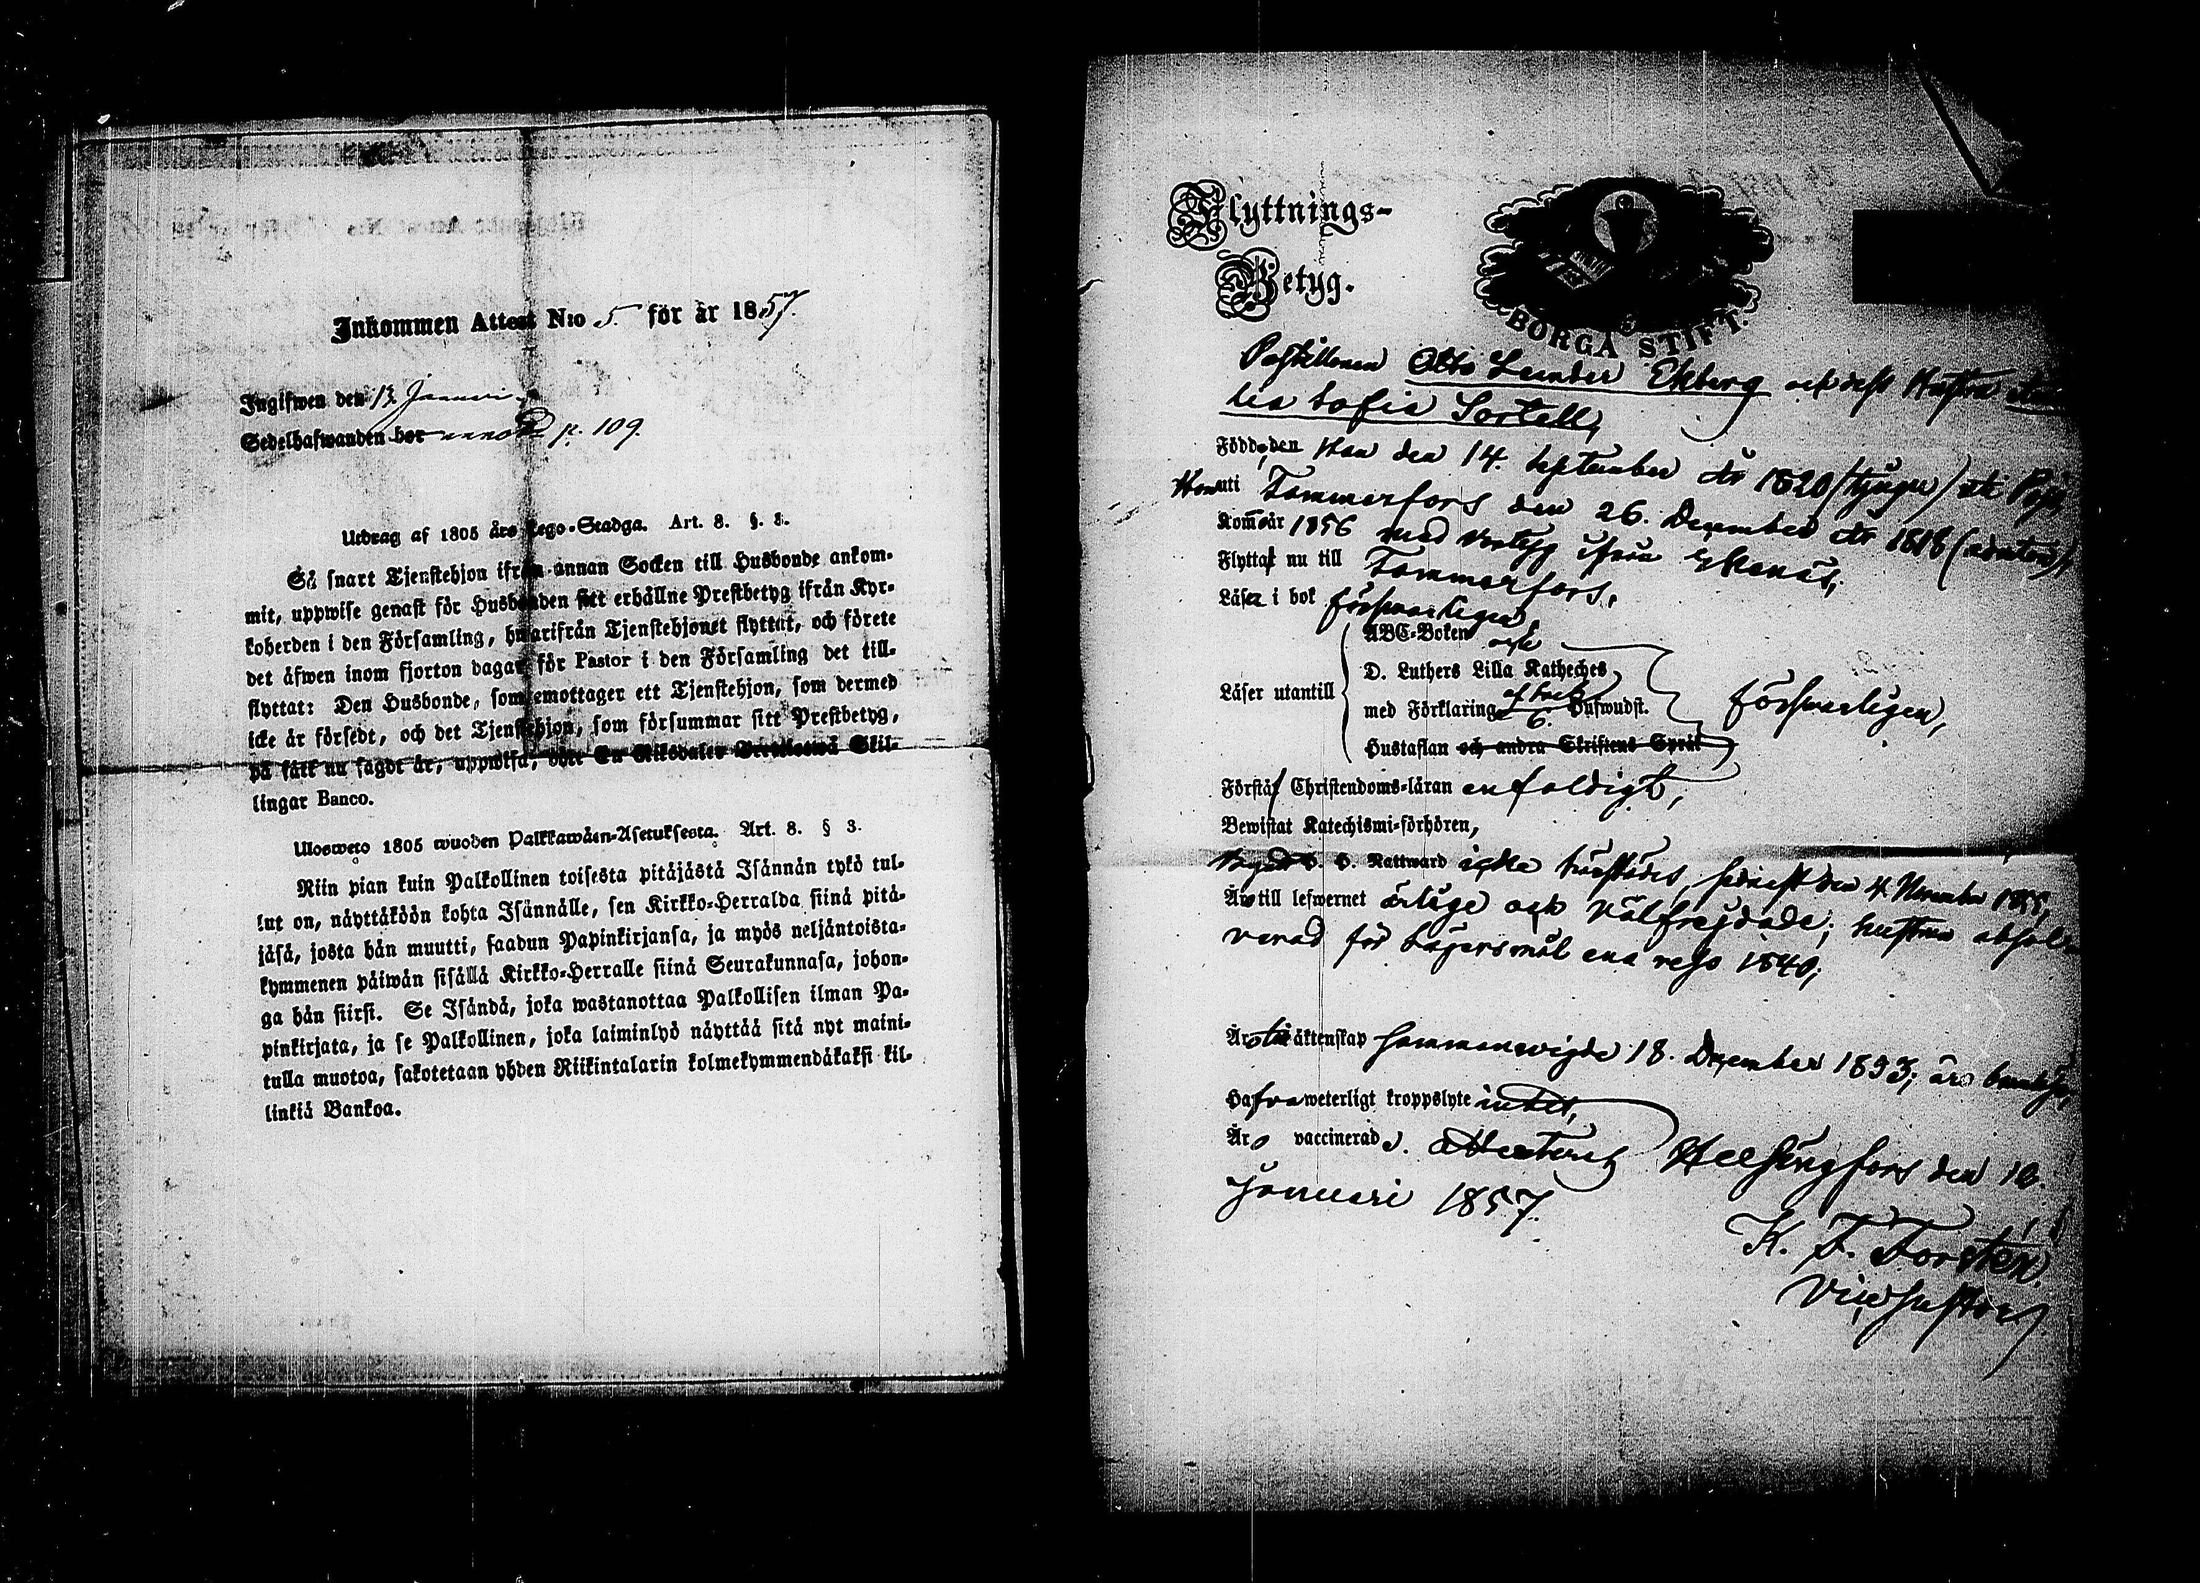 Inkommen Attest N:o 5. för år 1857.
Ingifwen den 13 Januari
Sedelhafwanden bor p. 109.
Utdrag af 1805 års Lego-Stadga. Art. 8. §. 3.
Så snart Tjenstehjon ifrån annan Socken till Husbonde ankom-
mit, uppwise genast för Husbonden sitt erhållne Prestbetyg ifrån Kyr-
koherden i den Församling, hwarifrån Tjenstehjonet flyttat, och förete
det äfwen inom fjorton dagar för Pastor i den Församling det till-
flyttat: Den Husbonde, som emottager ett Tjenstehjon, som dermed
icke är försedt, och det Tjenstehjon, som försummar sitt Prestbetyg,
på sätt nu sagdt är, uppwisa, böte En Riksdaler Trettiotwå Skil-
lingar Banco.
Ulosweto 1805 wuoden Palkkawäen-Asetuksesta. Art. 8. § 3.
Niin pian kuin Palkollinen toisesta pitäjästä Isännän tykö tul-
lut on, näyttäköön kohta Isännälle, sen Kirkko-Herralda siinä pitä-
jäsä, josta hän muutti, saadun Papinkirjansa, ja myös neljäntoista-
kymmenen päiwän sisällä Kirkko-Herralle siinä Seurakunnasa, johon-
ga hän siirsi. Se Isändä, joka wastanottaa Palkollisen ilman Pa-
pinkirjata, ja se Palkollinen, joka laiminlyö näyttää sitä nyt maini-
tulla muotoa, sakotetaan yhden Riikintalarin kolmekymmendäkaksi kil-
linkiä Bankoa.
Flyttnings-
Betyg.
BORGÅ STIFT.
Postillonen Otto Leander Ekberg och dess Hustru
lia Sofia Sortell,
Födde, den Han den 14. September år 1820 (tjugu) uti
Hon uti Tammerfors den 26. December år 1818 (aderton),
Kommo år 1856 med betyg ifrån Ekenäs;
Flyttat nu till Tammerfors,
Läser i bok försvarligen,
Läser utantill
ABC-Boken och
D. Luthers Lilla Katheches
med Förklaring af Hufwudst.
6.
Hustaflan och andra Skriftens Språk
försvarligen,
Förstå Christendoms-läran enfaldigt,
Bewistat Katechismi-förhören,
H. H. Nattward icke härstädes, sednast den 4. November 1855,
Äro till lefwernet ärlige och välfrejdade; hustrun absol-
verad för lägersmål ena resa 1840;
Äro till äktenskap sammanvigde 18. December 1853; äro
Hafva weterligt kroppslyte intet,
Äro vaccinerade. Attesteras Helsingfors den 10.
Januari 1857.
K. F. Forstén.
Vicepastor